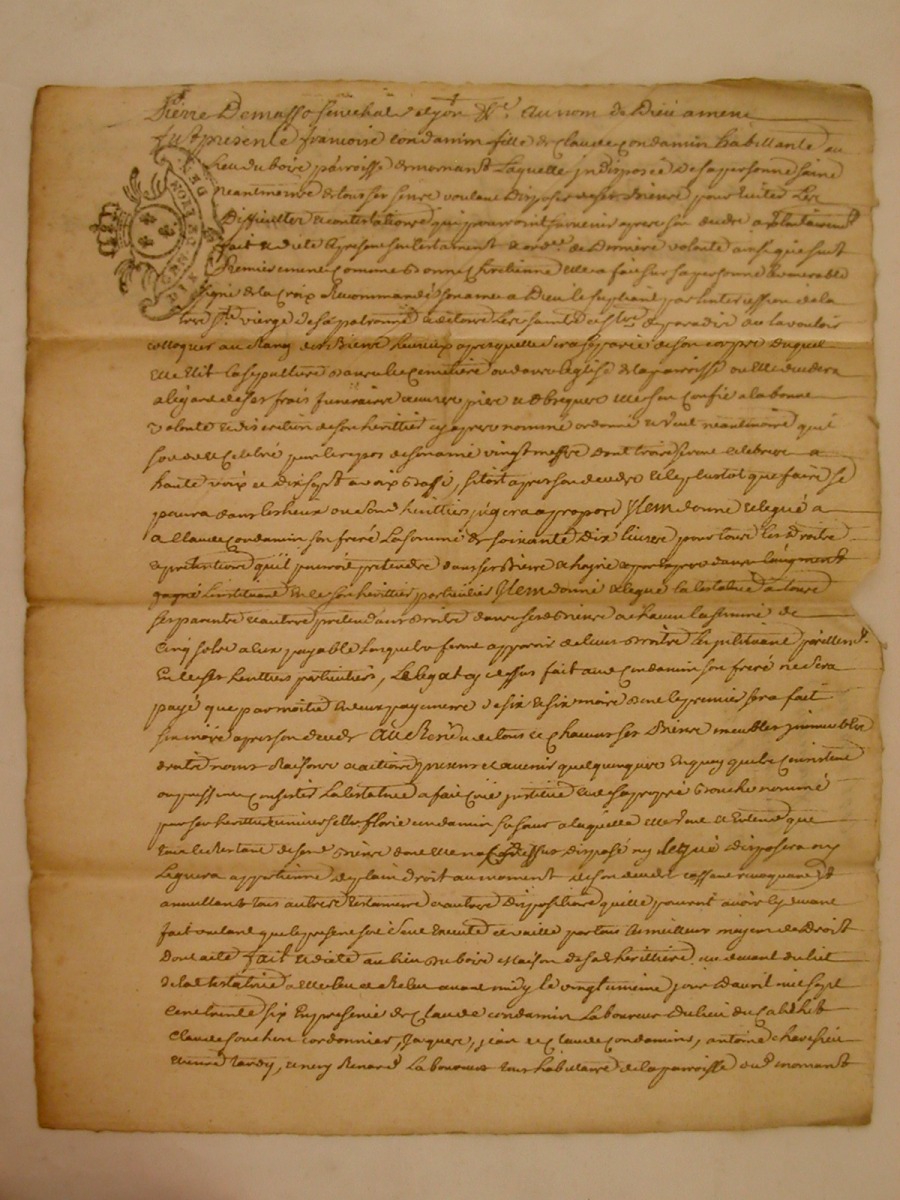 Pierre Demasso Senechal de Lyon &c. Au nom de Dieu amen
fust presente francoise Condamin fille de Claude Condamin habittante au
lieu du bois parroisse de mornant Laquelle indisposée de sa personne saine
neantmoins de tous ses sens voulant Disposer de ses Biens pour éviter Les
Difficultes & contestations qui pourroint survenir apres son decedz a volontairemt
fait & dicté a present son testament & ordce de Derniere volonté ainsi que suit
Premierement comme Bonne Chretienne elle a fait sur sa personne le venerable
signe de la Croix Recommandé son ame a Dieu le supliant par lintercession de la
tres Ste vierge de sa patronne & de tous Les saints De de paradis de la vouloir
colloquer au Rang des Biens heureux apres quelle sera separée de son corps duquel
elle Elit la sepulture dans le Cemetiere ou dans leglise de la parroisse ou Elle decedera
a legard de ses frais funeraires œuvres pies & obseques elle s'en confie a la bonne
volonté & discretion de son herittier cy apres nommé ordonne & veut neantmoins quil
soit celebré pour le repos de son ame vingt messes dont trois seront celebrées a
haute voix et Dix sept a voix Basse, sitost apres son decedz et le plustot que faire se
poura dans les lieux ou sond. herittier jugera a propos Item donne & legue a
a Claude Condamin son frere La somme de soixante Dix livres pour tous les Droits
& pretentions quil pourroit pretendre dans ses Biens
linstituant En ce son herittier particulier Item donne & legue la testatrice a tous
ses parents & autres pretendants droits dans ses Biens a chacun la somme de
Cinq sols a eux payable lorsquils feront apparoir de leurs Droits Les instituant pareillemt.
En ce ses herittiers particuliers, Le legat cy dessus fait aud Condamin son frere ne sera
payé que par moitié en deux payements de six en six mois dont le premier sera fait
six mois apres son decedz Au Residu de tous et chacuns ses Biens meubles immeubles
droits noms Raisons & actions presents et avenir quelquonques En quoy quils Consistent
ou puissent Consister La testatrice a fait crée institué & de sa propre Bouche nommé
pour son herittiere universelle florie Condamin sa sœur a laquelle elle veut et Entend que
tout le Restant de ses Biens dont elle n'a cy dessus disposé ny legué disposera ny
leguera appartienne de plain droit au moment de son decedz cassant revoquant &
annullant tous autres testaments & autres Dispositions quelle pourroit avoir cy devant
fait voulant que le present soit seul Executé et vaille par tous les meilleurs moyens de Droit
Dont acte fait & dicté au lieu du bois Maison de lad. herittiere au devant du lict
de la testatrice a elle lu et Relu avant midy le vingt uniéme jour d'avril mil sept
cent trente six En presence de Claude Condamin Laboureur du lieu du
Claude Souchon Cordonnier, Jacques, jean et Claude Condamins, antoine
tardy, Renard Laboureurs tous habitants de la parroisse dud. mornant